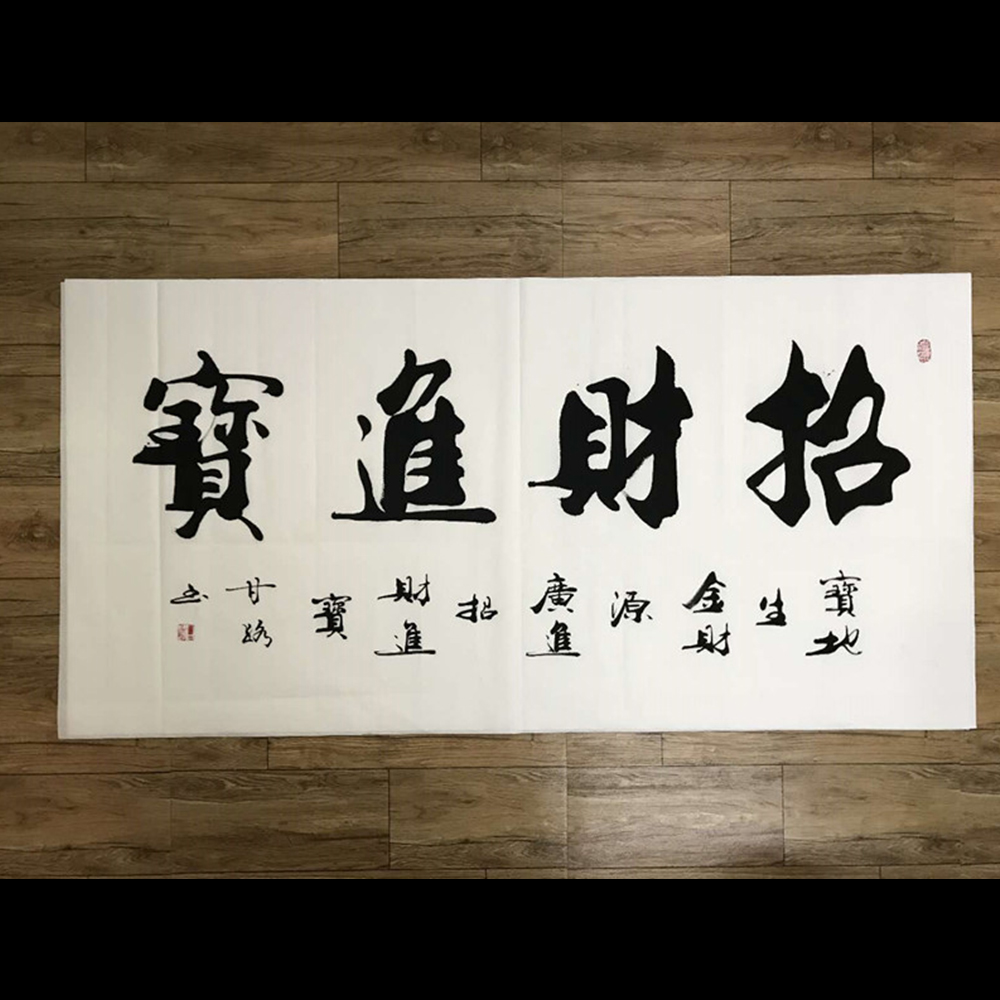 招財進寶
寶地生金財源廣進招財進寶
甘露书